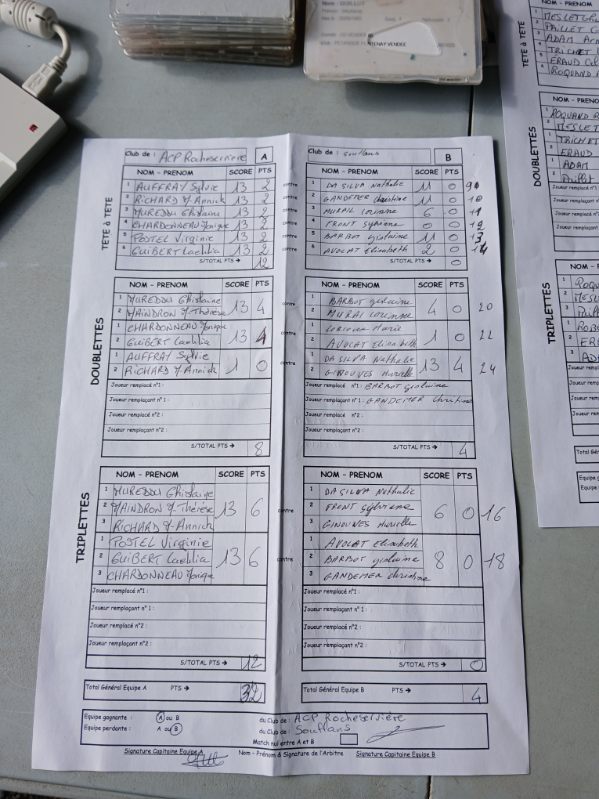 Club de : ACP Rocheservière A
NOM - PRENOM SCORE PTS
TETE à TETE
1 AUFFRAY Sylvie 13 2 contre
2 RICHARD M. Annick 13 2 contre
3 MUREDDU Ghislaine 13 2 contre
4 CHARDONNEAU Monique 13 2 contre
5 POSTEL Virginie 13 2 contre
6 GUIBERT Laetitia 13 2 contre
S/TOTAL PTS 12
Club de : Soullans B
NOM - PRENOM SCORE PTS
1 DA SILVA Nathalie 11 0
2 GANDEMER Christine 11 0 10
3 6 0 11
4 FRONT Sylviane 0 0 12
5 BARBOT Gislaine 11 0 13
6 AVOCAT Elisabeth 2 0 14
S/TOTAL PTS 0
DOUBLETTES
NOM - PRENOM SCORE PTS
1 MUREDDU Ghislaine 13 4
2 MAINDRON M. Thérèse
1 CHARDONNEAU Monique 13 4
2 GUIBERT Laetitia
1 AUFFRAY Sylvie 1 0
2 RICHARD M. Annick
Joueur remplacé n°1 :
Joueur remplaçant n°1 :
Joueur remplacé n°2 :
Joueur remplaçant n°2 :
S/TOTAL PTS → 8
NOM - PRENOM SCORE PTS
1 BARBOT Gislaine 4 0 20
2
1 Marie 1 0 22
2 AVOCAT Elisabeth
1 DA SILVA Nathalie 13 4 24
2 GINOUVES Murielle
Joueur remplacé n°1 : BARBOT Gislaine
Joueur remplaçant n°1 : GANDEMER Christine
Joueur remplacé n°2 :
Joueur remplaçant n°2 :
S/TOTAL PTS → 4
TRIPLETTES
NOM - PRENOM SCORE PTS
1 MUREDDU Ghislaine
2 MAINDRON M. Thérèse 13 6
3 RICHARD M. Annick
1 POSTEL Virginie
2 GUIBERT Laetitia 13 6
3 CHARDONNEAU Monique
Joueur remplacé n°1 :
Joueur remplaçant n°1 :
Joueur remplacé n°2 :
Joueur remplaçant n°2 :
S/TOTAL PTS → 12
Total Général Equipe A PTS → 32
NOM - PRENOM SCORE PTS
1 DA SILVA Nathalie
2 FRONT Sylviane 6 0 16
3 GINOUVES Murielle
1 AVOCAT Elisabeth
2 BARBOT Gislaine 8 0 18
3 GANDEMER Christine
Joueur remplacé n°1 :
Joueur remplaçant n°1 :
Joueur remplacé n°2 :
Joueur remplaçant n°2 :
S/TOTAL PTS → 0
Total Général Equipe B PTS → 4
Equipe gagnante : A ou B du Club de : ACP Rocheservière
Equipe perdante : A ou B du Club de : Soullans
Match nul entre A et B
Signature Capitaine Equipe A Nom - Prénom & Signature de l'Arbitre Signature Capitaine Equipe B
TETE à TETE
NOM - PRENOM
DOUBLETTES
NOM - PRENOM
TRIPLETTES
NOM - PRENOM